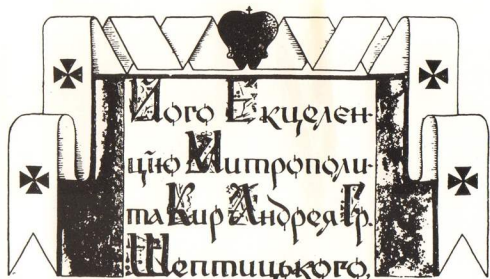 Його Екцелен-
цію Митрополи-
та Кир Андрея Гр.
Шептицького